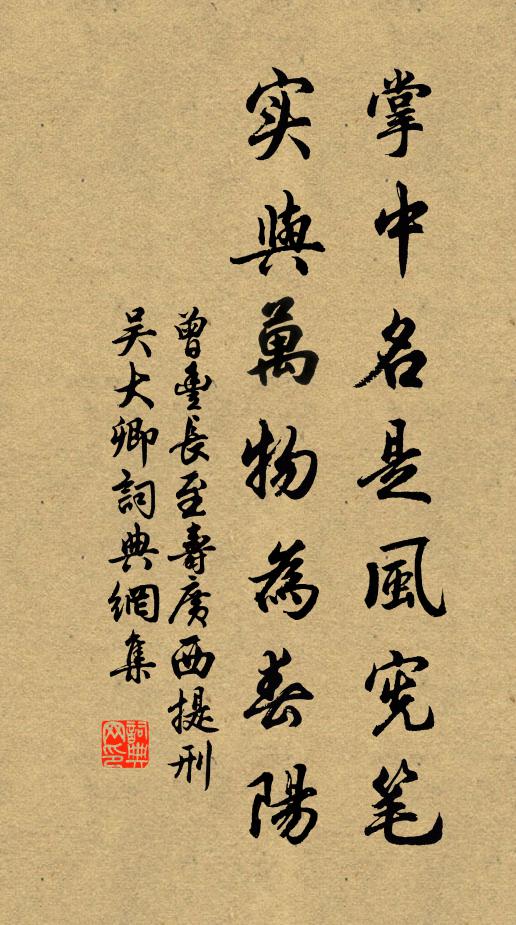 掌中名是風宪笔
实與萬物為春陽
曾豐長至壽廣西提刑
吴大卿詞典網集
詞典
网印